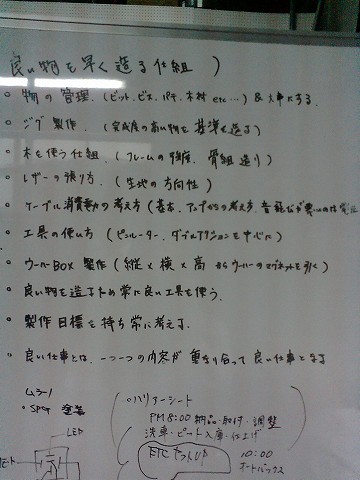 良い物を早く造る仕組 )
・物の管理.(ビット.ビス.パテ.木材 etc…) & 大事にする.
・ジグ製作.(完成度の高い物を基準を造る)
・木を使う仕組.(フレームの強度.骨組造り)
・レザーの張り方.(生地の方向性)
・ケーブル消費電力の考え方(基本.アンプからの考え方 音疵が悪いのは
・工具の使い方(ピンルーター.ダブルアクションを中心に)
・ウーハーBOX 製作(縦×横×高 からウーハーのマグネットを引く)
・良い物を造るため常に良い工具を使う.
・製作目標を持ち常に考えます.
・良い仕事とは、一つ一つの内容が重なり合って良い仕事となる
ムラーノ
・塗装
LED
・バリアーシート
PM8:00 納品・取付・調整
洗車・ピット入庫・仕上げ
ETC セットUP
10:00
オートバックス